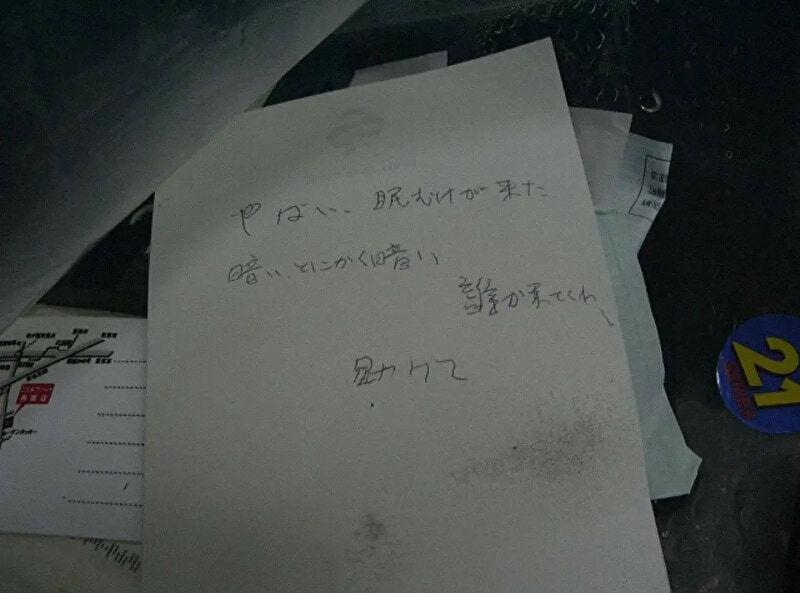 やばい、眠むけが来た
暗い、とにかく暗い
誰か来てくれ、
助けて
21